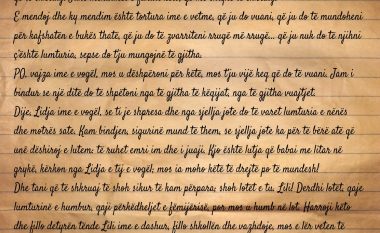 E mendoj dhe ky mendim është tortura ime e vetme, që ju do vuani, që ju do të mundoheni
për kafshatën e bukës thatë, që ju do të zvarriteni rrugë më rrugë... që ju nuk do të njihni
ç'është lumturia, sepse do t'ju mungojnë të gjitha.
PO, vajza ime e vogël, mos u dëshpëroni për këtë, mos t'ju vijë keq që do të vuani. Jam i
bindur se një ditë do të shpëtoni nga të gjitha të këqijat, nga të gjitha vuajtjet.
Dije, Lidja ime e vogël, se ti je shpresa dhe nga sjellja jote do të varet lumturia e nënës
dhe motrës sate. Kam bindjen, sigurinë mund të them, se sjellja jote ka për të bërë atë që
unë dëshiroj e lutem: të ruhet emri im dhe i juaji. Kjo është lutja që babai me litar në
grykë, kërkon nga Lidja e tij e vogël; mos ia moho këtë të drejtë po të mundesh!
Dhe tani që të shkruaj të shoh sikur të kam përpara; shoh lotët e tu, Lili! Derdhi lotët, qaje
lumturinë e humbur, qaji përkëdheljet e fëmijërisë, por mos u humb në lot. Harroji këto
dhe fillo detyrën tënde Lili ime e dashur, fillo shkollën dhe vazhdoje, mos e lër veten të